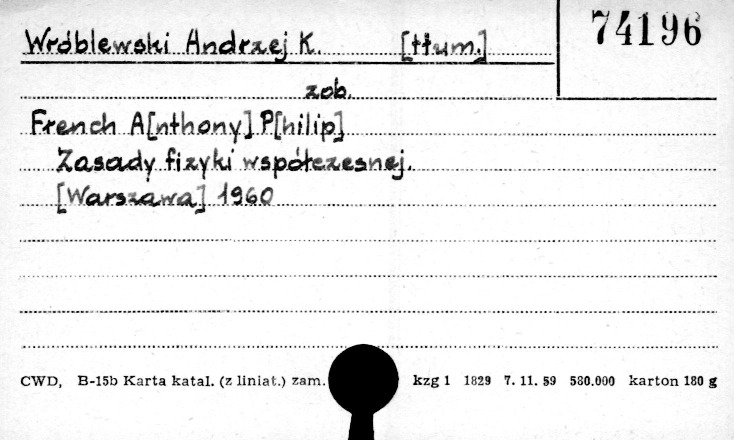 Wróblewski Andrzej K. [tłum.]
74196
zob.
French A[nthony] P[hilip]
Zasady fizyki współczesnej.
[Warszawa] 1960
CWD, B-15b Karta katal. (z liniat.) zam. kzg 1 1829 7. 11. 59 580.000 karton 180 g